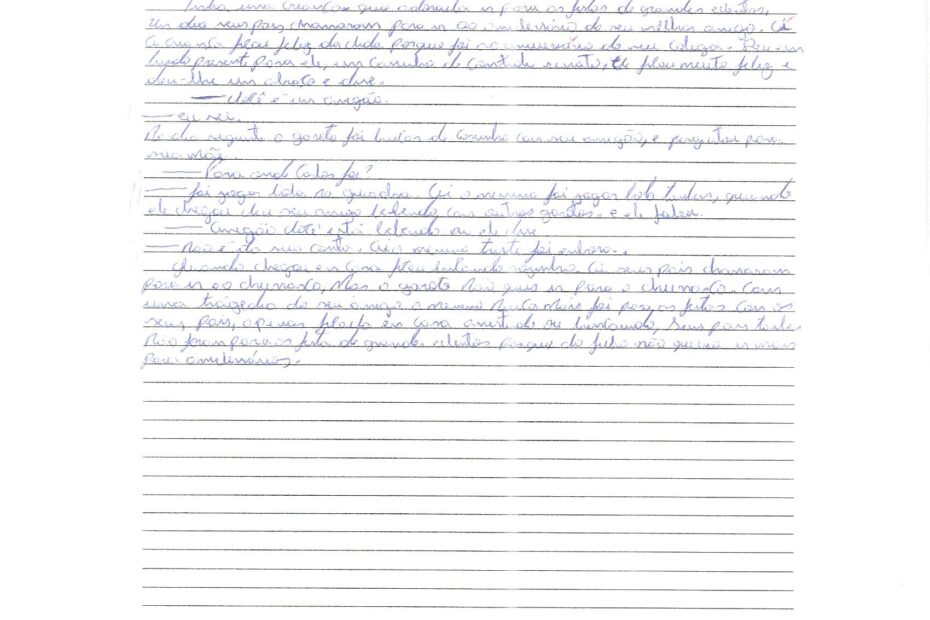 Tinha uma criança que adorava ir para as festas de grandes eventos,
Um dia seus pais chamaram para ir ao aniversário do seu melhor amigo. Ai
a criança ficou feliz da vida porque foi ao aniversário do seu colega. Deu um
lindo presente para ele, um carrinho de controle remoto, ele ficou muito feliz e
deu-lhe um abraço e disse.
— você é um amigão.
— eu sei.
No dia seguinte o garoto foi de carrinho com seu amigão, e perguntou para
seu mãe
— Para onde Carlos foi?
— foi jogar bola na quadra. Ai o menino foi jogar bola, quando
ele chegou viu seu amigo bebendo com outros garotos. e ele falou.
— Amigão você está bebendo ou ele disse.
— Não é da sua conta. Ai o menino triste foi embora.
Quando chegou em casa ficou brincando sozinho. Ai seus pais chamaram
para ir ao churrasco, Mas o garoto não quis ir para o churrasco. Com
uma tragédia do seu amigo o menino nunca mais foi para as festas com os
seus, pais, apenas ficava em casa brincando, seus pais
não foram para as festa de grandes eventos porque do filho não queria ir mais
para aniversários.